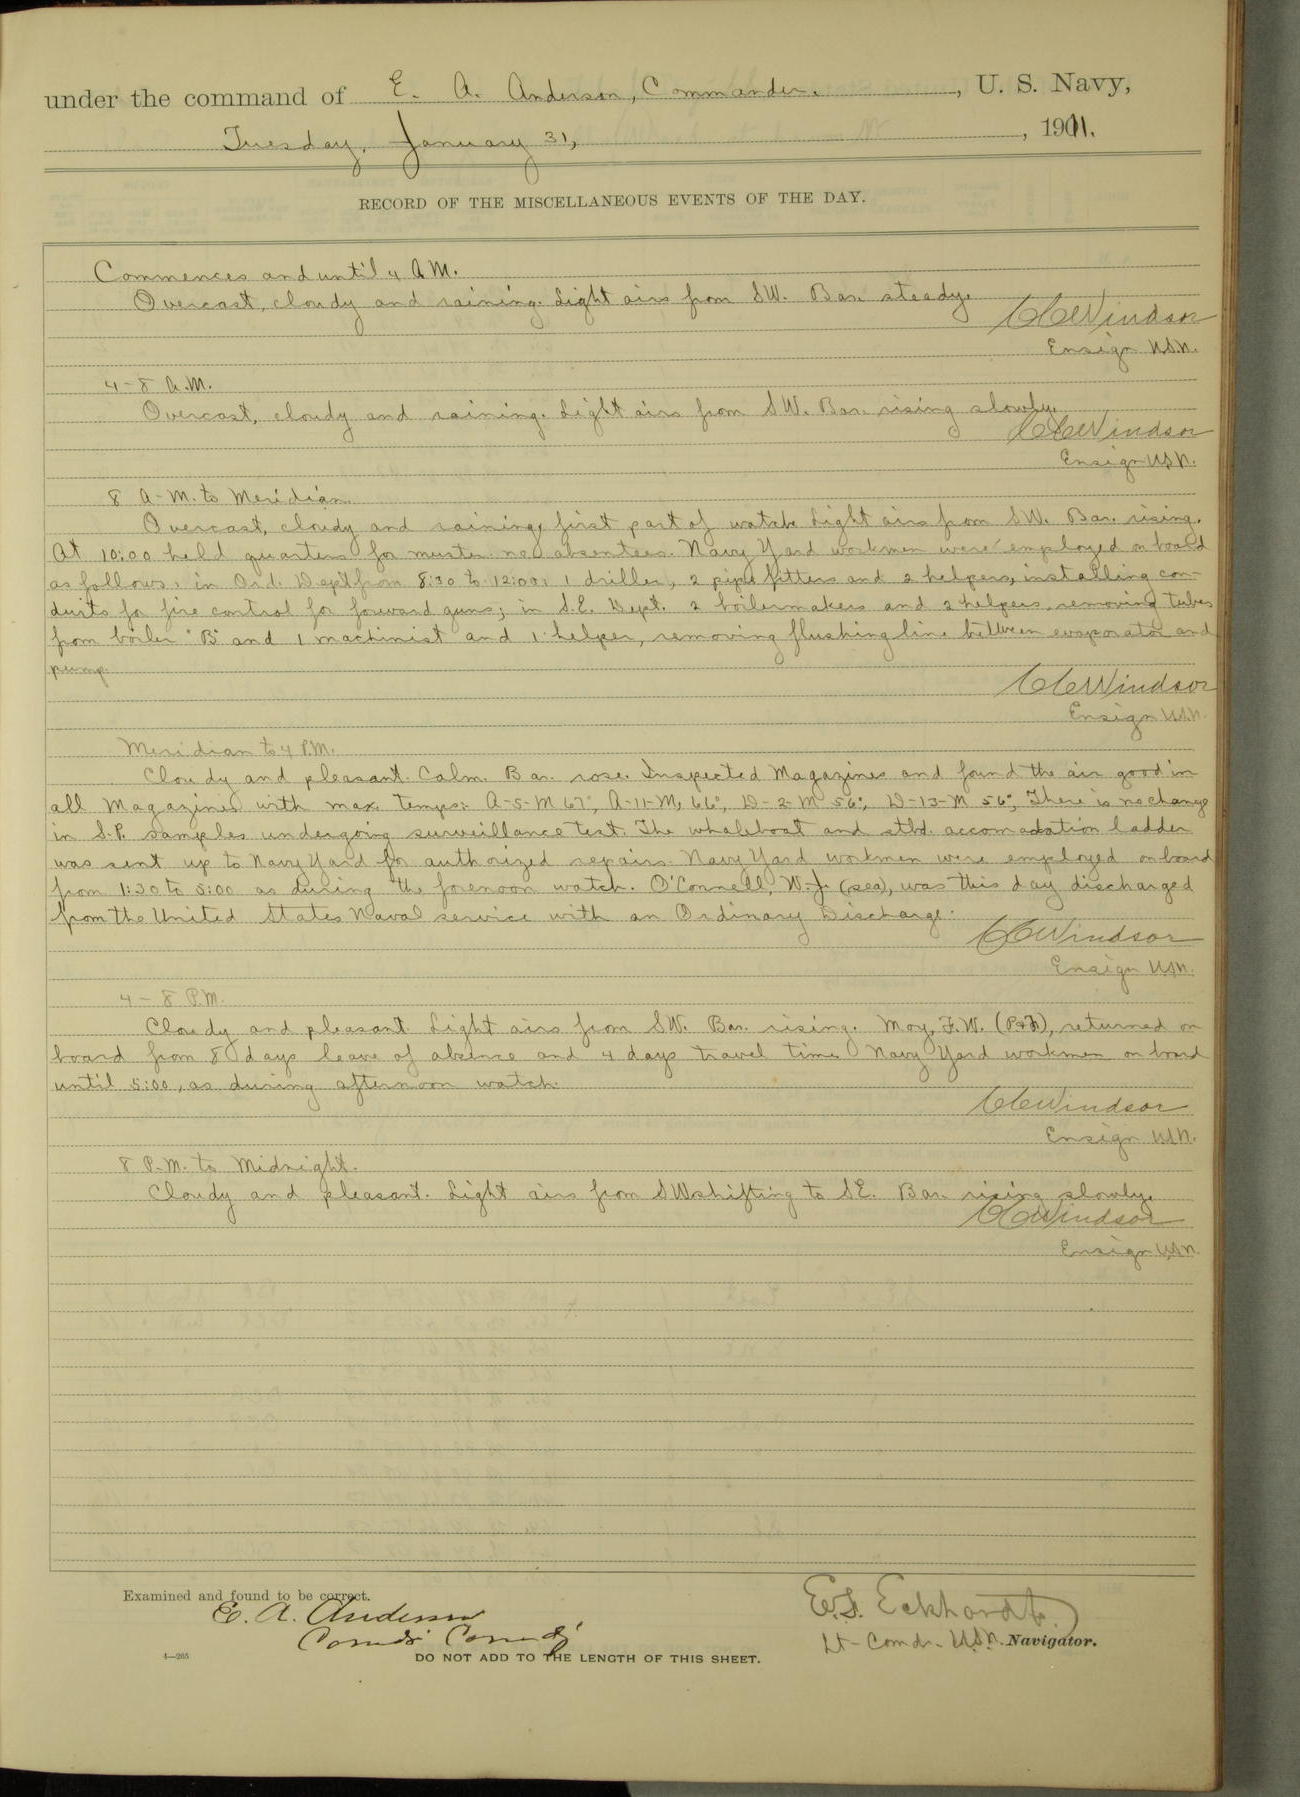 under the command of E. A. Anderson, Commander. , U. S. Navy,
Tuesday, January 31, , 1911.
RECORD OF THE MISCELLANEOUS EVENTS OF THE DAY.
Commences and until 4 A.M.
Overcast, cloudy and raining. Light airs from SW. Bar. steady.
C C Windsor
Ensign U.S.N.
4-8 A.M.
Overcast, cloudy and raining. Light airs from SW. Bar. rising slowly.
C C Windsor
Ensign U.S.N.
8 A-M. to Meridian.
Overcast, cloudy and raining, first part of watch. Light airs from SW. Bar. rising.
At 10:00 held quarters for muster no absentees. Navy Yard workmen were employed on board
as follows: in Ord. Dep't from 8:30 to 12:00: 1 driller, 2 pipe fitters and 2 helpers, installing con-
duits for fire control for forward guns; in S.E. Dept. 2 boilermakers and 2 helpers removing tubes
from boiler "B" and 1 machinist and 1 helper, removing flushing line between evaporator and
pump.
C C Windsor
Ensign U.S.N.
Meridian to 4 P.M.
Cloudy and pleasant. Calm. Bar. rose. Inspected Magazines and found the air good in
all Magazines with max. temps: A-5-M 67°, A-11-M, 66°, D-2-M 56°, D-13-M 56°, There is no change
in S.P. samples undergoing surveillance test. The whaleboat and stbd. accomodation ladder
was sent up to Navy Yard for authorized repairs. Navy Yard workmen were employed on board
from 1:30 to 5:00 as during the forenoon watch. O'Connell, W.J. (sea), was this day discharged
from the United States Naval service with an Ordinary Discharge.
C C Windsor
Ensign U.S.N.
4-8 P.M.
Cloudy and pleasant. Light airs from SW. Bar. rising. Moy, F.W. returned on
board from 8 days leave of absence and 4 days travel time. Navy Yard workmen on board
until 5:00, as during afternoon watch.
C C Windsor
Ensign U.S.N.
8 P.M. to Midnight.
Cloudy and pleasant. Light airs from SW shifting to SE. Bar. rising slowly.
C C Windsor
Ensign U.S.N.
Examined and found to be correct.
E. A. Anderson
E. S. Eckhardt
Lt-Comdr. U.S.N. Navigator.
4—265
DO NOT ADD TO THE LENGTH OF THIS SHEET.